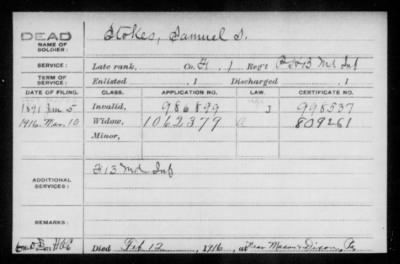 DEAD
NAME OF SOLDIER: Stokes, Samuel S.
SERVICE: Late rank, Co. H, Reg't 13 Md Inf
TERM OF SERVICE: Enlisted , 1 Discharged , 1
DATE OF FILING. CLASS. APPLICATION NO. LAW. CERTIFICATE NO.
1891 Jan 5 Invalid, 986899 3 998537
1916 Mar. 10 Widow, 1062379 a 809261
Minor,
ADDITIONAL SERVICES: 13 Md Inf
REMARKS:
Died Feb 12, 1916, at near Mason & Dixon, Pa